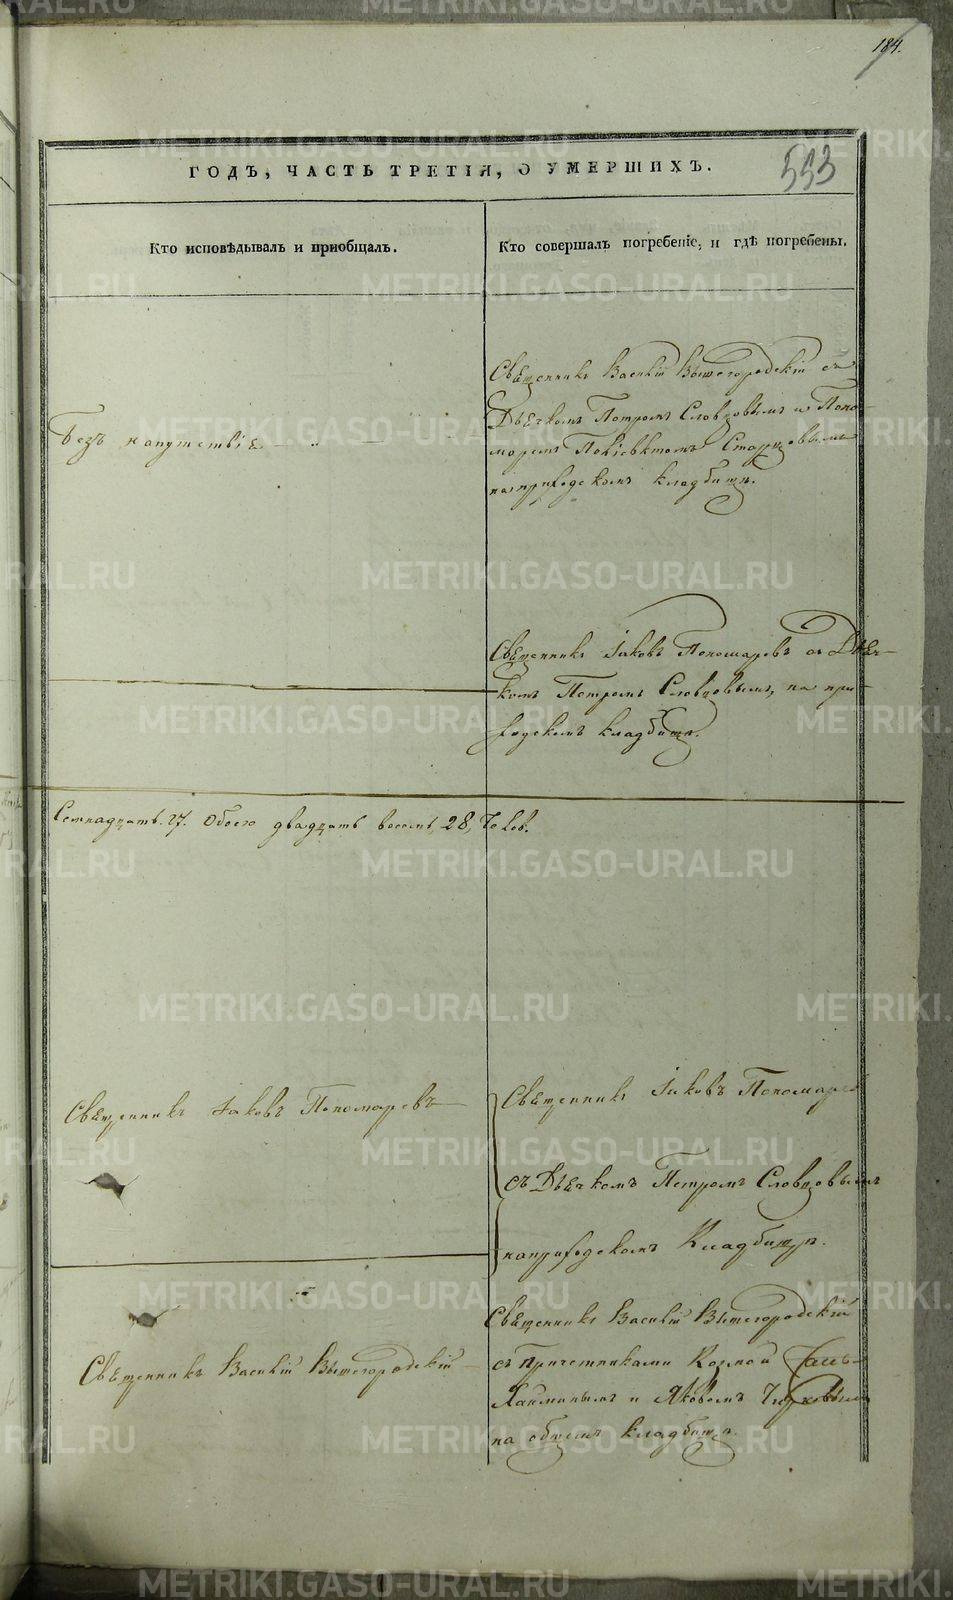 184.
ГОДЪ, ЧАСТЬ ТРЕТІЯ, О УМЕРШИХЪ.
553
Кто исповѣдывалъ и пріобщалъ.
Кто совершалъ погребеніе, и гдѣ погребены.
Священникъ Василій Вышегородскій съ
Дьячкомъ Петромъ Словцовымъ и Поно-
Безъ напутствія
моремъ
на приходскомъ кладбищѣ.
Священникъ Іаковъ Пономаревъ съ Дьяч-
комъ Петромъ Словцовымъ, на при-
ходскомъ кладбищѣ.
Семнадцать. 17. Обоего двадцать восемь, 28, челов.
Священникъ Іаковъ Пономаревъ
Священникъ Іаковъ Пономарев
съ Дьячкомъ Петромъ Словцовымъ
на приходскомъ Кладбищѣ.
Священникъ Василій Вышегородскій
Священникъ Василій Вышегородскій
съ Причетниками Козмой
и Яковомъ
на общемъ кладбищѣ.
METRIKI.GASO-URAL.RU